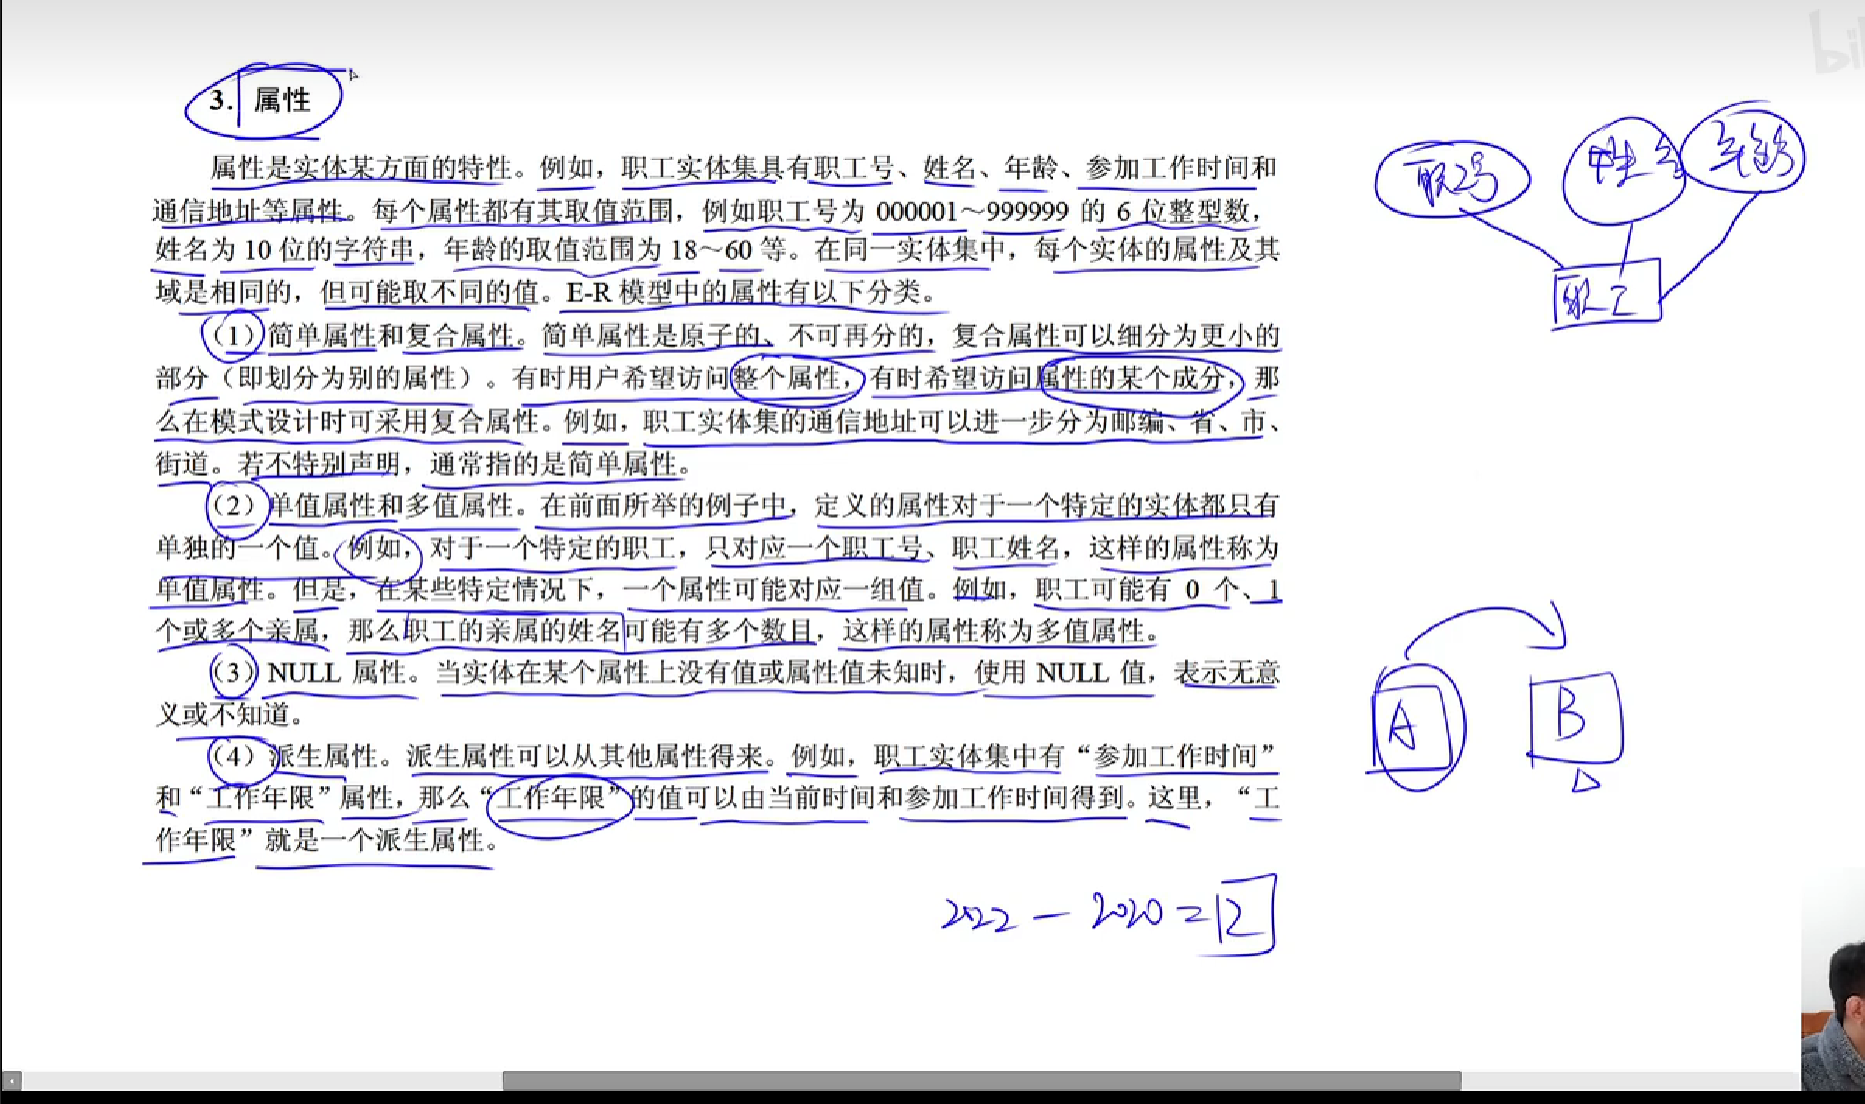 3. 属性
属性是实体某方面的特性。例如，职工实体集具有职工号、姓名、年龄、参加工作时间和
通信地址等属性。每个属性都有其取值范围，例如职工号为 000001～999999 的 6 位整型数，
姓名为 10 位的字符串，年龄的取值范围为 18～60 等。在同一实体集中，每个实体的属性及其
域是相同的，但可能取不同的值。E-R 模型中的属性有以下分类。
（1）简单属性和复合属性。简单属性是原子的、不可再分的，复合属性可以细分为更小的
部分（即划分为别的属性）。有时用户希望访问整个属性，有时希望访问属性的某个成分，那
么在模式设计时可采用复合属性。例如，职工实体集的通信地址可以进一步分为邮编、省、市、
街道。若不特别声明，通常指的是简单属性。
（2）单值属性和多值属性。在前面所举的例子中，定义的属性对于一个特定的实体都只有
单独的一个值。例如，对于一个特定的职工，只对应一个职工号、职工姓名，这样的属性称为
单值属性。但是，在某些特定情况下，一个属性可能对应一组值。例如，职工可能有 0 个、1
个或多个亲属，那么职工的亲属的姓名可能有多个数目，这样的属性称为多值属性。
（3）NULL 属性。当实体在某个属性上没有值或属性值未知时，使用 NULL 值，表示无意
义或不知道。
（4）派生属性。派生属性可以从其他属性得来。例如，职工实体集中有“参加工作时间”
和“工作年限”属性，那么“工作年限”的值可以由当前时间和参加工作时间得到。这里，“工
作年限”就是一个派生属性。
2022 — 2020 = 2
职工号
年龄
职工
A
B